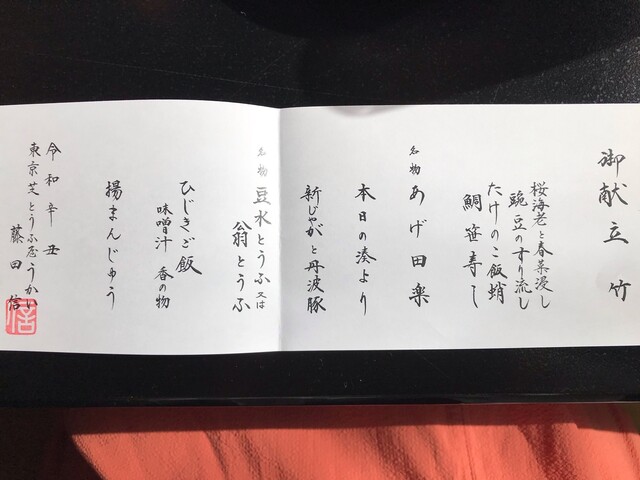 御献立 竹
桜海老と春菜浸し
豌豆のすり流し
たけのこ飯蛸
鯛笹寿し
名物 あげ田楽
本日の湊より
新じゃがと丹波豚
名物 豆水とうふ 又は
翁とうふ
ひじきご飯
味噌汁 香の物
揚まんじゅう
令和辛丑
東京芝とうふ屋うかい
藤田信